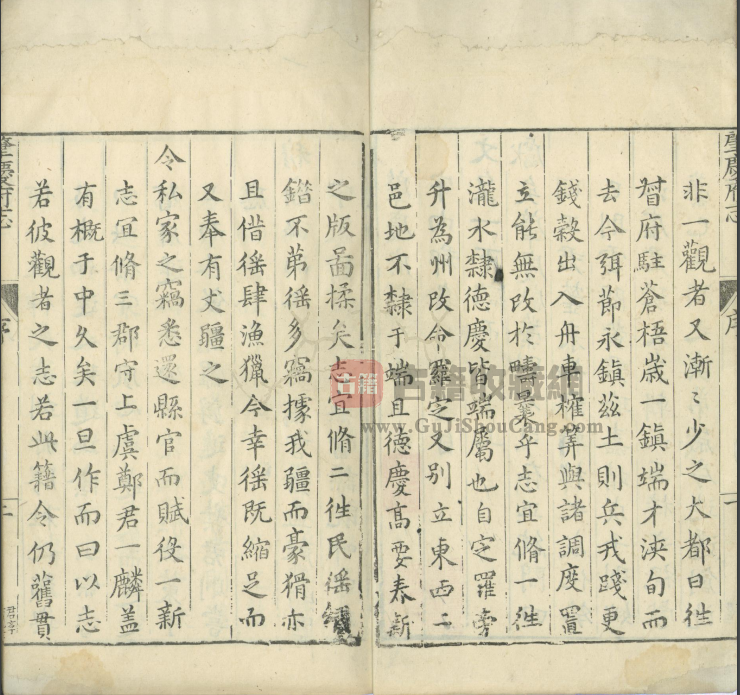 肇慶府志
序
一
非一觀者又漸〻少之大都曰徃
督府駐蒼梧歲一鎮端才浹旬而
去今弭節永鎮茲土則兵戎踐更
錢穀出入舟車榷筭與諸調度置
立能無攺於疇曩乎志宜脩一徃
瀧水隸德慶皆端屬也自定羅旁
升為州攺命羅定又別立東西二
邑地不隸于端且德慶高要泰新
之版啚揉矣志宜脩二徃民徭
錯不第徭多竊據我疆而豪猾亦
且借徭肆漁獵今幸徭既縮足而
又奉有丈疆之
令私家之竊悉還縣官而賦役一新
志宜脩三郡守上虞鄭君一麟蓋
有概于中久矣一旦作而曰以志
若彼觀者之志若此籍令仍舊貫
肇慶府志
序
二
古籍收藏網
www.GuJiShouCang.com